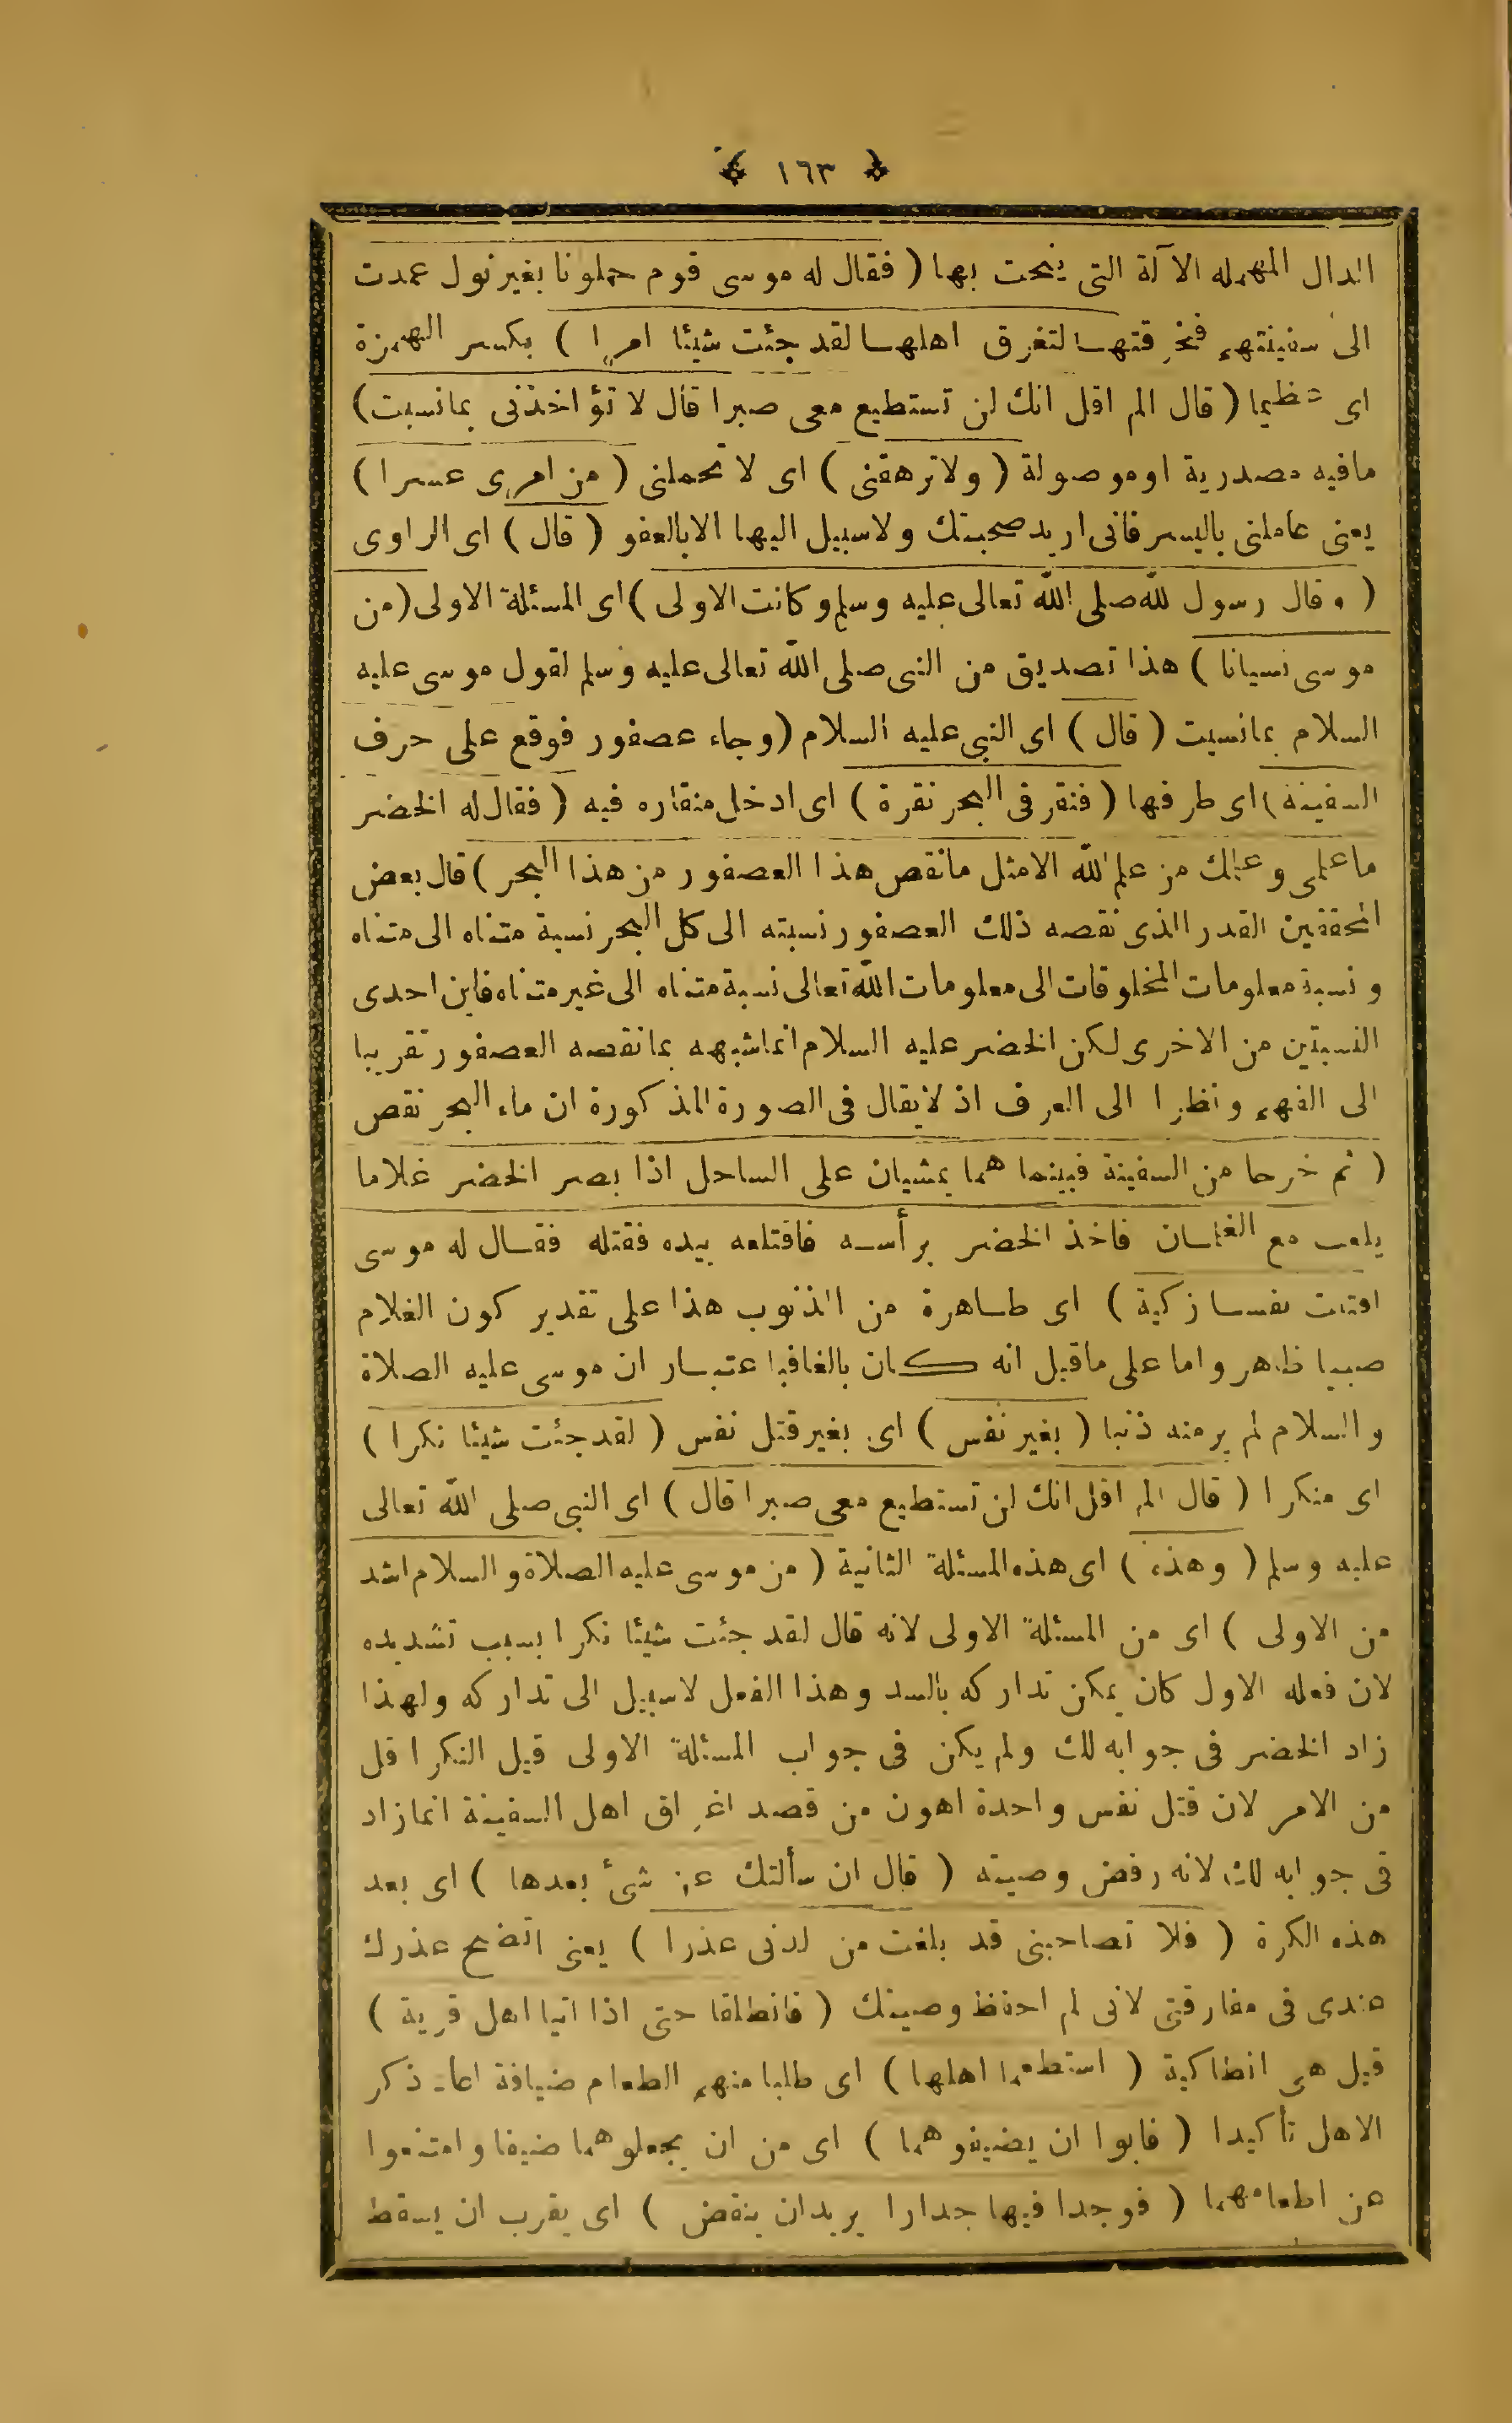 ﴿ ١٦٣ ﴾
الدال المهمله الآلة التى ينحت بها ( فقال له موسى قوم حملونا بغير نول عمدت
الى سفينتهم فخرقتها لتغرق اهلها لقد جئت شيئا امرا ) بكسر الهمزة
اى عظيما ( قال الم اقل انك لن تستطيع معى صبرا قال لا تؤاخذنى بمانسيت )
مافيه مصدرية اوموصولة ( ولا ترهقنى ) اى لا تحملنى ( من امرى عسرا )
يعنى عاملنى باليسر فانى اريد صحبتك ولاسبيل اليها الابالعفو ( قال ) اى الراوى
( وقال رسول الله صلى الله تعالى عليه وسلم وكانت الاولى ) اى المسئلة الاولى ( من
موسى نسيانا ) هذا تصديق من النبى صلى الله تعالى عليه وسلم لقول موسى عليه
السلام بمانسيت ( قال ) اى النبى عليه السلام ( وجاء عصفور فوقع على حرف
السفينة ) اى طرفها ( فنقر فى البحر نقرة ) اى ادخل منقاره فيه ( فقال له الخضر
ما علمى وعلمك من علم الله الامثل مانقص هذا العصفور من هذا البحر ) قال بعض
المحققين القدر الذى نقصه ذلك العصفور نسبته الى كل البحر نسبة متناه الى متناه
ونسبة معلومات المخلوقات الى معلومات الله تعالى نسبة متناه الى غير متناه فاين احدى
النسبتين من الاخرى لكن الخضر عليه السلام انماشبهه بمانقصه العصفور تقريبا
الى الفهم ونظرا الى العرف اذ لايقال فى الصورة المذكورة ان ماء البحر نقص
( ثم خرجا من السفينة فبينما هما يمشيان على الساحل اذا بصر الخضر غلاما
يلعب مع الغلمان فاخذ الخضر برأسه فاقتلعه بيده فقتله فقال له موسى
اقتلت نفسا زكية ) اى طاهرة من الذنوب هذا على تقدير كون الغلام
صبيا ظاهر واما على ماقيل انه كان بالغافباعتبار ان موسى عليه الصلاة
والسلام لم يرمنه ذنبا ( بغير نفس ) اى بغير قتل نفس ( لقد جئت شيئا نكرا )
اى منكرا ( قال الم اقل انك لن تستطيع معى صبرا قال ) اى النبى صلى الله تعالى
عليه وسلم ( وهذه ) اى هذه المسئلة الثانية ( من موسى عليه الصلاة والسلام اشد
من الاولى ) اى من المسئلة الاولى لانه قال لقد جئت شيئا نكرا بسبب تشديده
لان فعله الاول كان يمكن تداركه بالسد وهذا الفعل لاسبيل الى تداركه ولهذا
زاد الخضر فى جوابه لك ولم يكن فى جواب المسئلة الاولى قيل النكر اقل
من الامر لان قتل نفس واحدة اهون من قصد اغراق اهل السفينة انمازاد
فى جوابه لك لانه رفض وصيته ( قال ان سألتك عن شئ بعدها ) اى بعد
هذه الكرة ( فلا تصاحبنى قد بلغت من لدنى عذرا ) يعنى اتضح عذرك
عندى فى مفارقتى لانى لم احفظ وصيتك ( فانطلقا حتى اذا اتيا اهل قرية )
قيل هى انطاكية ( استطعما اهلها ) اى طلبا منهم الطعام ضيافة اعاد ذكر
الاهل تأكيدا ( فابوا ان يضيفوهما ) اى من ان يجعلوهما ضيفا وامتنعوا
عن اطعامهما ( فوجدا فيها جدارا يريدان ينقض ) اى يقرب ان يسقط